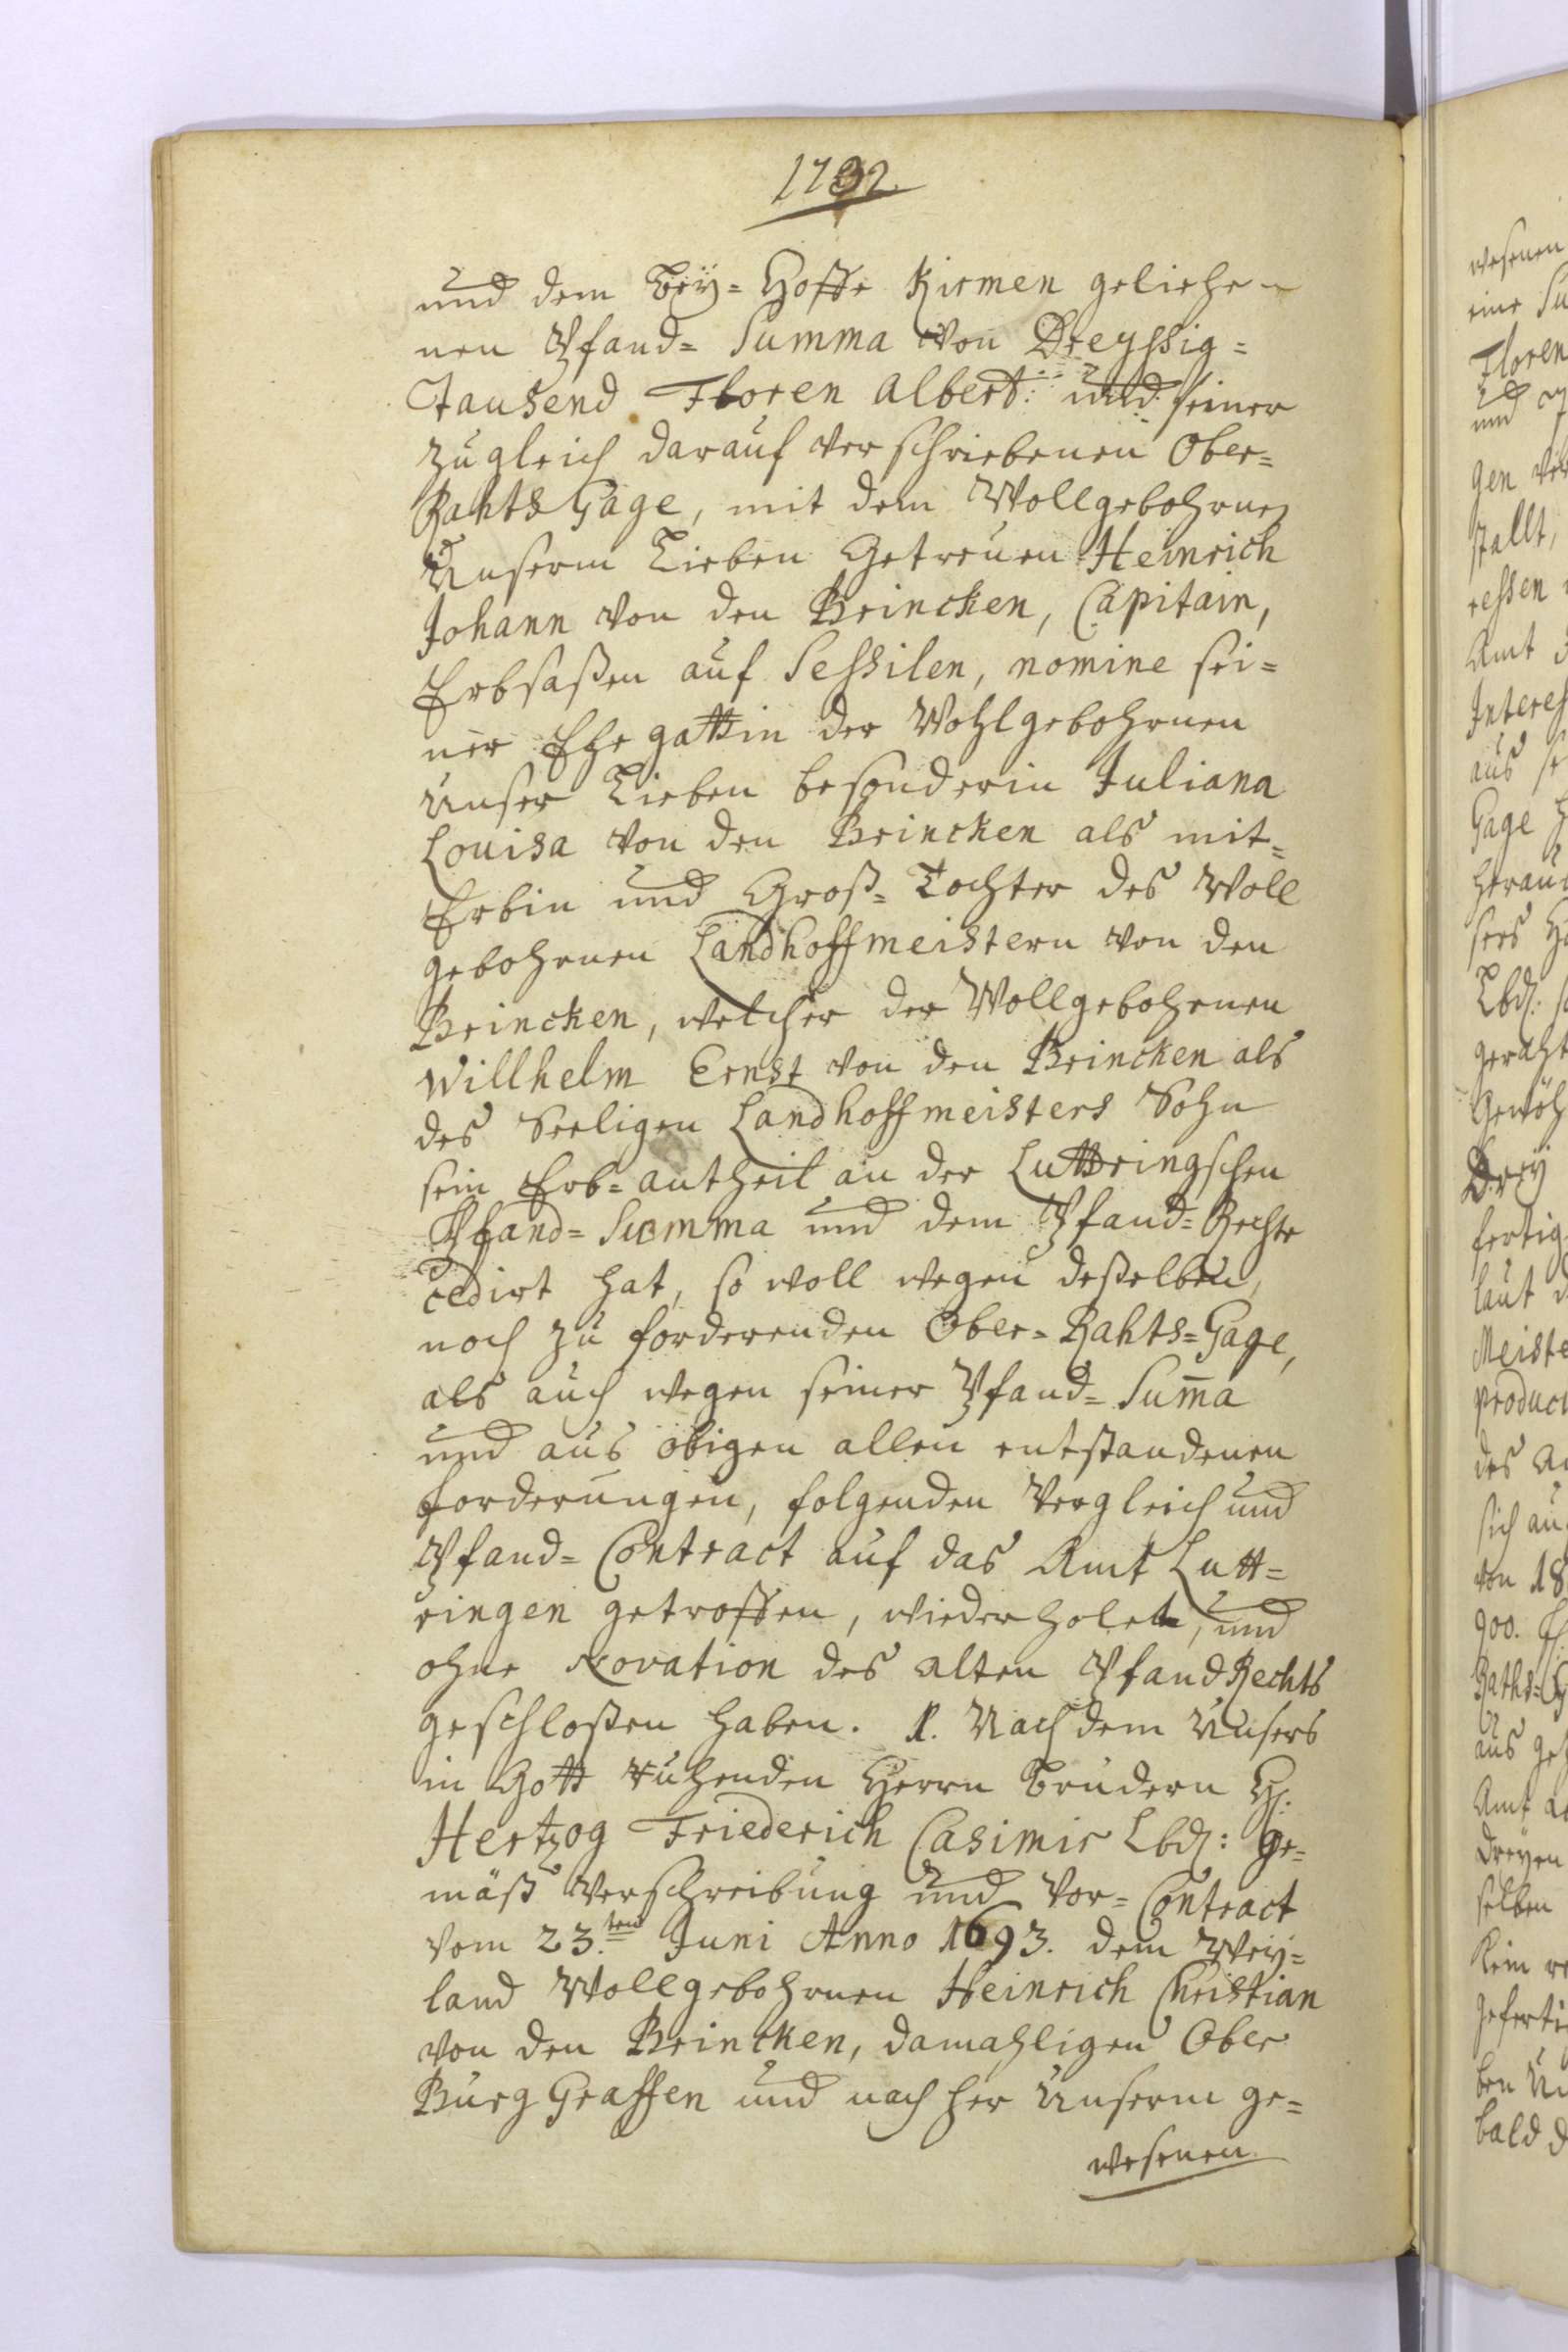 1732.
und dem Beÿ=Hoffe Kirmen geliehe-
nen Pfand=Summa von Dreyssig=
Tausend Floren Albert: und seiner
zugleich darauf verschriebenen Ober=
Rahts Gage, mit dem Wollgebohrnen
Unserm Lieben Getreuen Heinrich
Johann von den Brincken, Capitain,
Erbsaßen auf Sessilen, nomine sei=
ner Ehegattin der Wohlgebohrnen
Unser Lieben besonderin Juliana
Louisa von den Brincken als mit=
Erbin und Groß=Tochter des Woll
gebohrnen Landhoffmeistern von den
Brincken, welcher der Wollgebohrnen
Willhelm Ernst von den Brincken als
des Seeligen Landhoffmeisters Sohn
sein Erb=antheil an der Luttringschen
Pfand=Summa und dem Pfand=Rechte
cedirt hat, so woll wegen deßelben,
noch zu forderenden Ober=Rahts=Gage,
als auch wegen seiner Pfand=Sum̄a
und aus obigen allen entstandenen
forderungen, folgenden Vergleich und
Pfand=Contract auf das Amt Lutt=
ringen getroffen, wiederholet, und
ohne Novation des alten Pfand Rechts
geschloßen haben. 1. Nach dem Unsers
in Gott ruhenden Herrn Brudern H:
Hertzog Friederich Casimir Lbd: ge=
mäß Verschreibung und Vor=Contract
vom 23.ten Juni Anno 1693. dem Wey=
land Wollgebohrnen Heinrich Christian
von den Brincken, damahligen Ober
Burg Graffen und nach her Unserm ge=
wesenen
wesenen
eine Su
Floren
und
gen
stallt,
ressen
Amt
Interes
aus se
Gage
heraus
sers
Lbd:
geraht
Gewöh
Drey
fertig
laut
Meiste
produc
des
sich au
von 18
900.
Raths=
aus ge
Amt
dreyen
selben
Kein
geferti
ben
bald